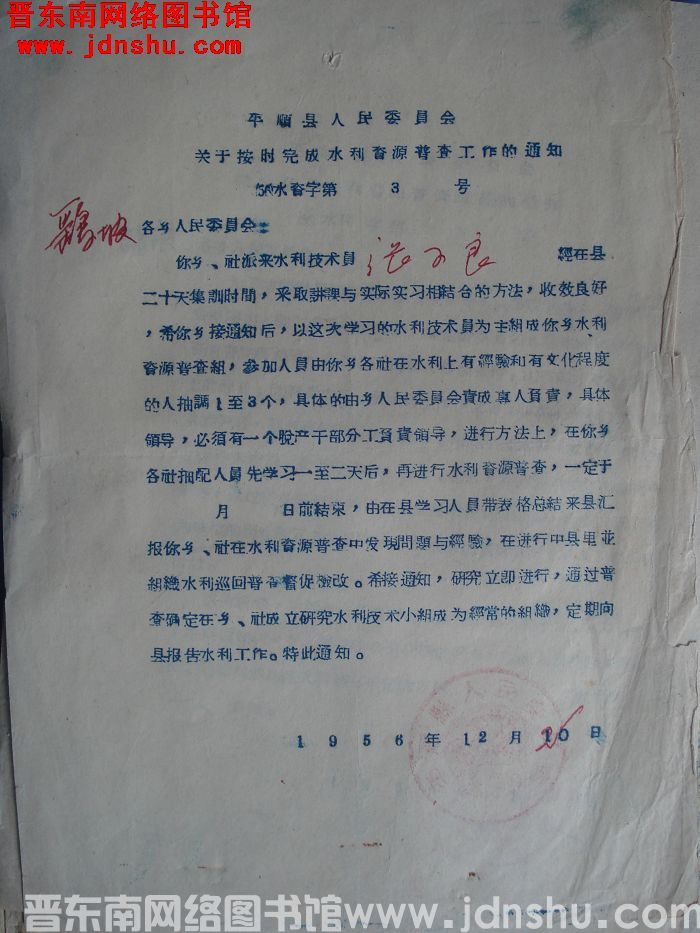 晋东南网络图书馆
www.jdnshu.com
平順县人民委員会
关于按时完成水利資源普查工作的通知
56水資字第 3 号
各乡人民委員会:
你乡、社派来水利技术員 良 經在县
二十天集訓时間，采取講課与实际实习相結合的方法，收效良好
，希你乡接通知后，以这次学习的水利技术員为主組成你乡水利
資源普查組，参加人員由你乡各社在水利上有經驗和有文化程度
的人抽調1至3个，具体的由乡人民委員会責成專人負責，具体
領导，必須有一个脫产干部分工負責領导，进行方法上，在你乡
各社抽配人員先学习一至二天后，再进行水利資源普查，一定于
月 日前結束，由在县学习人員带表格总結来县汇
报你乡、社在水利資源普查中发現問題与經驗，在进行中县里並
組織水利巡回普查督促檢改。希接通知，研究立即进行，通过普
查确定在乡、社成立研究水利技术小組成为經常的組織，定期向
县报告水利工作。特此通知。
1956年12月10日
晋东南网络图书馆www.jdnshu.com